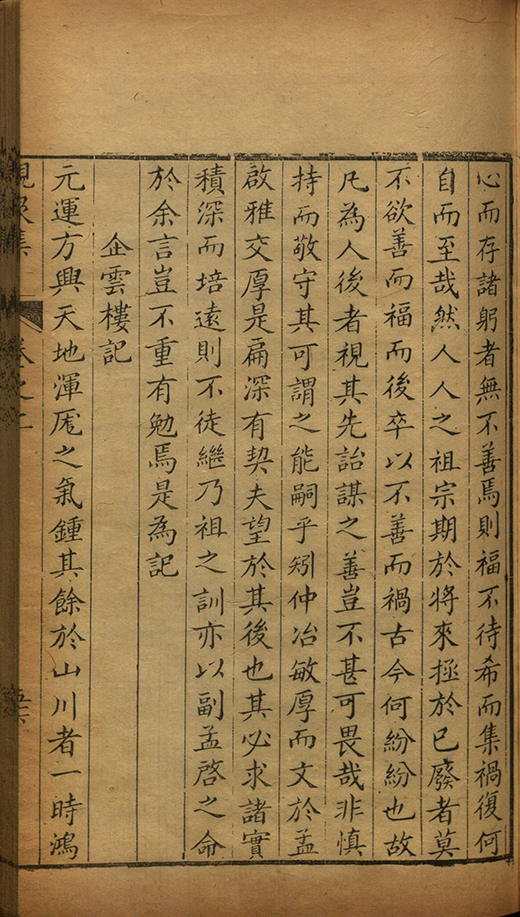 心而存諸躬者無不善焉則福不待希而集禍復何
自而至哉然人人之祖宗期於將來拯於已廢者莫
不欲善而福而後卒以不善而禍古今何紛紛也故
凡為人後者視其先詒謀之善豈不甚可畏哉非慎
持而敬守其可謂之能嗣乎矧仲冶敏厚而文於孟
啟雅交厚是扁深有契夫望於其後也其必求諸實
積深而培遠則不徒繼乃祖之訓亦以副孟啓之命
於余言豈不重有勉焉是為記
企雲樓記
元運方興天地渾厖之氣鍾其餘於山川者一時鴻
集 卷之二